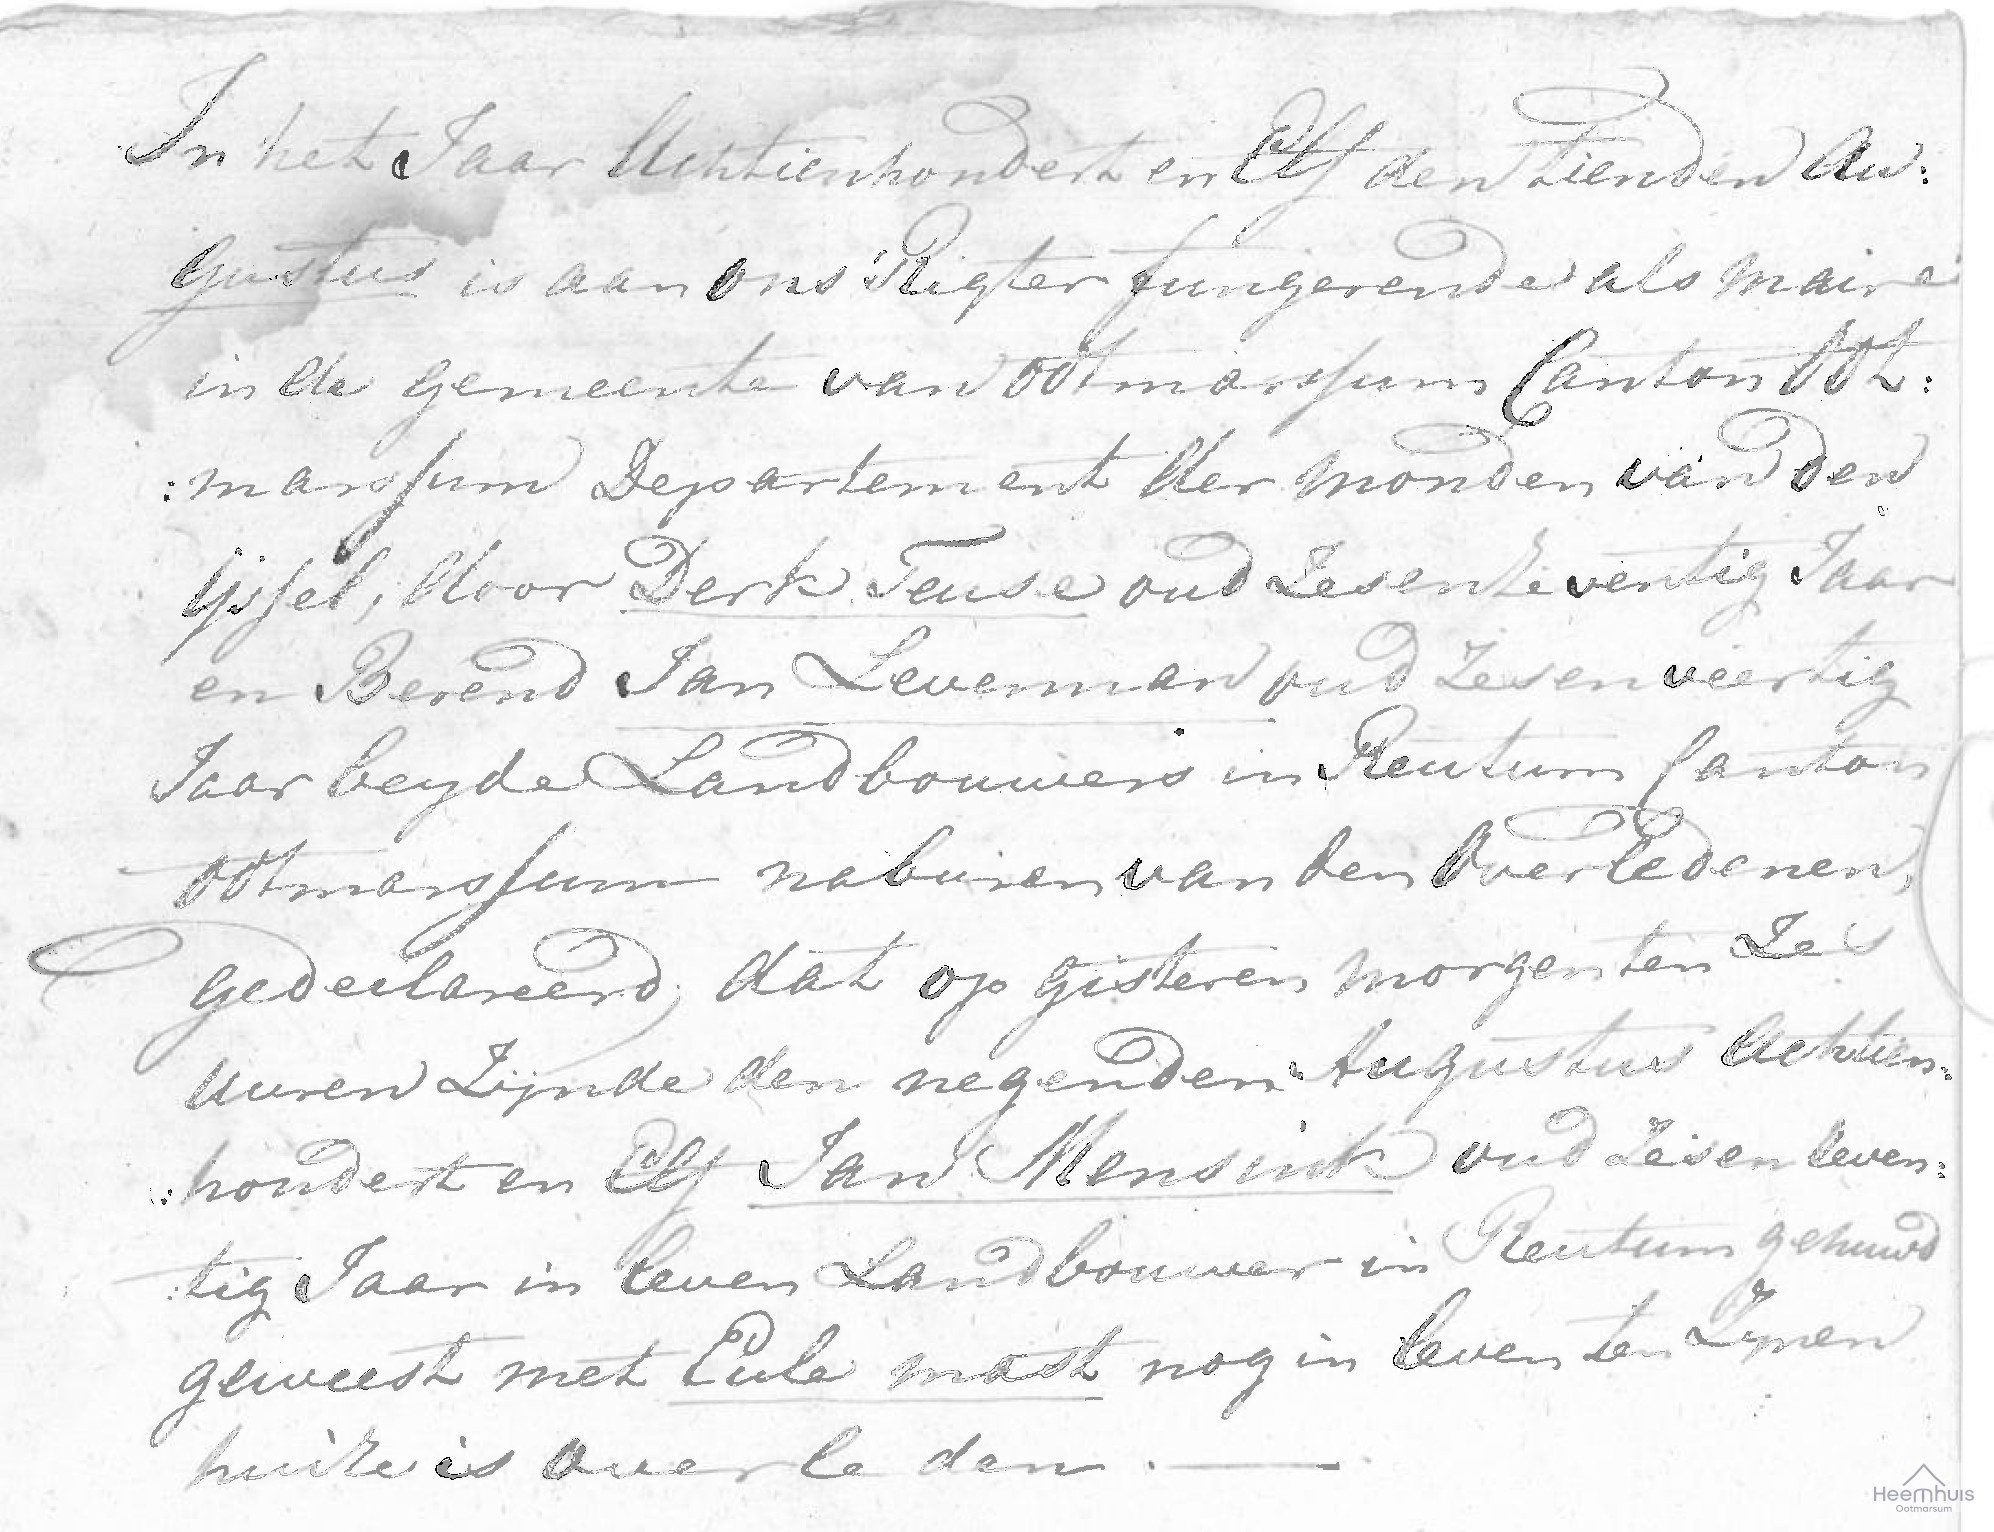 In het Jaar Achtienhondert en Elf den tienden Au:
gustus is aan ons Rigter fungerende als maire
in de gemeente van Ootmarssum Canton Oot:
:marssum Departement der monden van den
Ijssel, door Derk Teuse oud Zesenzeventig Jaar
en Berend Jan Leverman oud Zesenveertig
Jaar beyde Landbouwers in Reutum Canton
Ootmarssum naburen van den Overledenen,
gedeclareerd, dat op gisteren morgen ten Zes
uuren Zijnde den negenden Augustus Achtien:
:hondert en Elf Jan Mensink oud Zesen
:tig Jaar in leven Landbouwer in Reutum gehuwd
geweest met Eule most nog in leven ten Zijnen
huize is overleden. —
Heemhuis
Ootmarsum